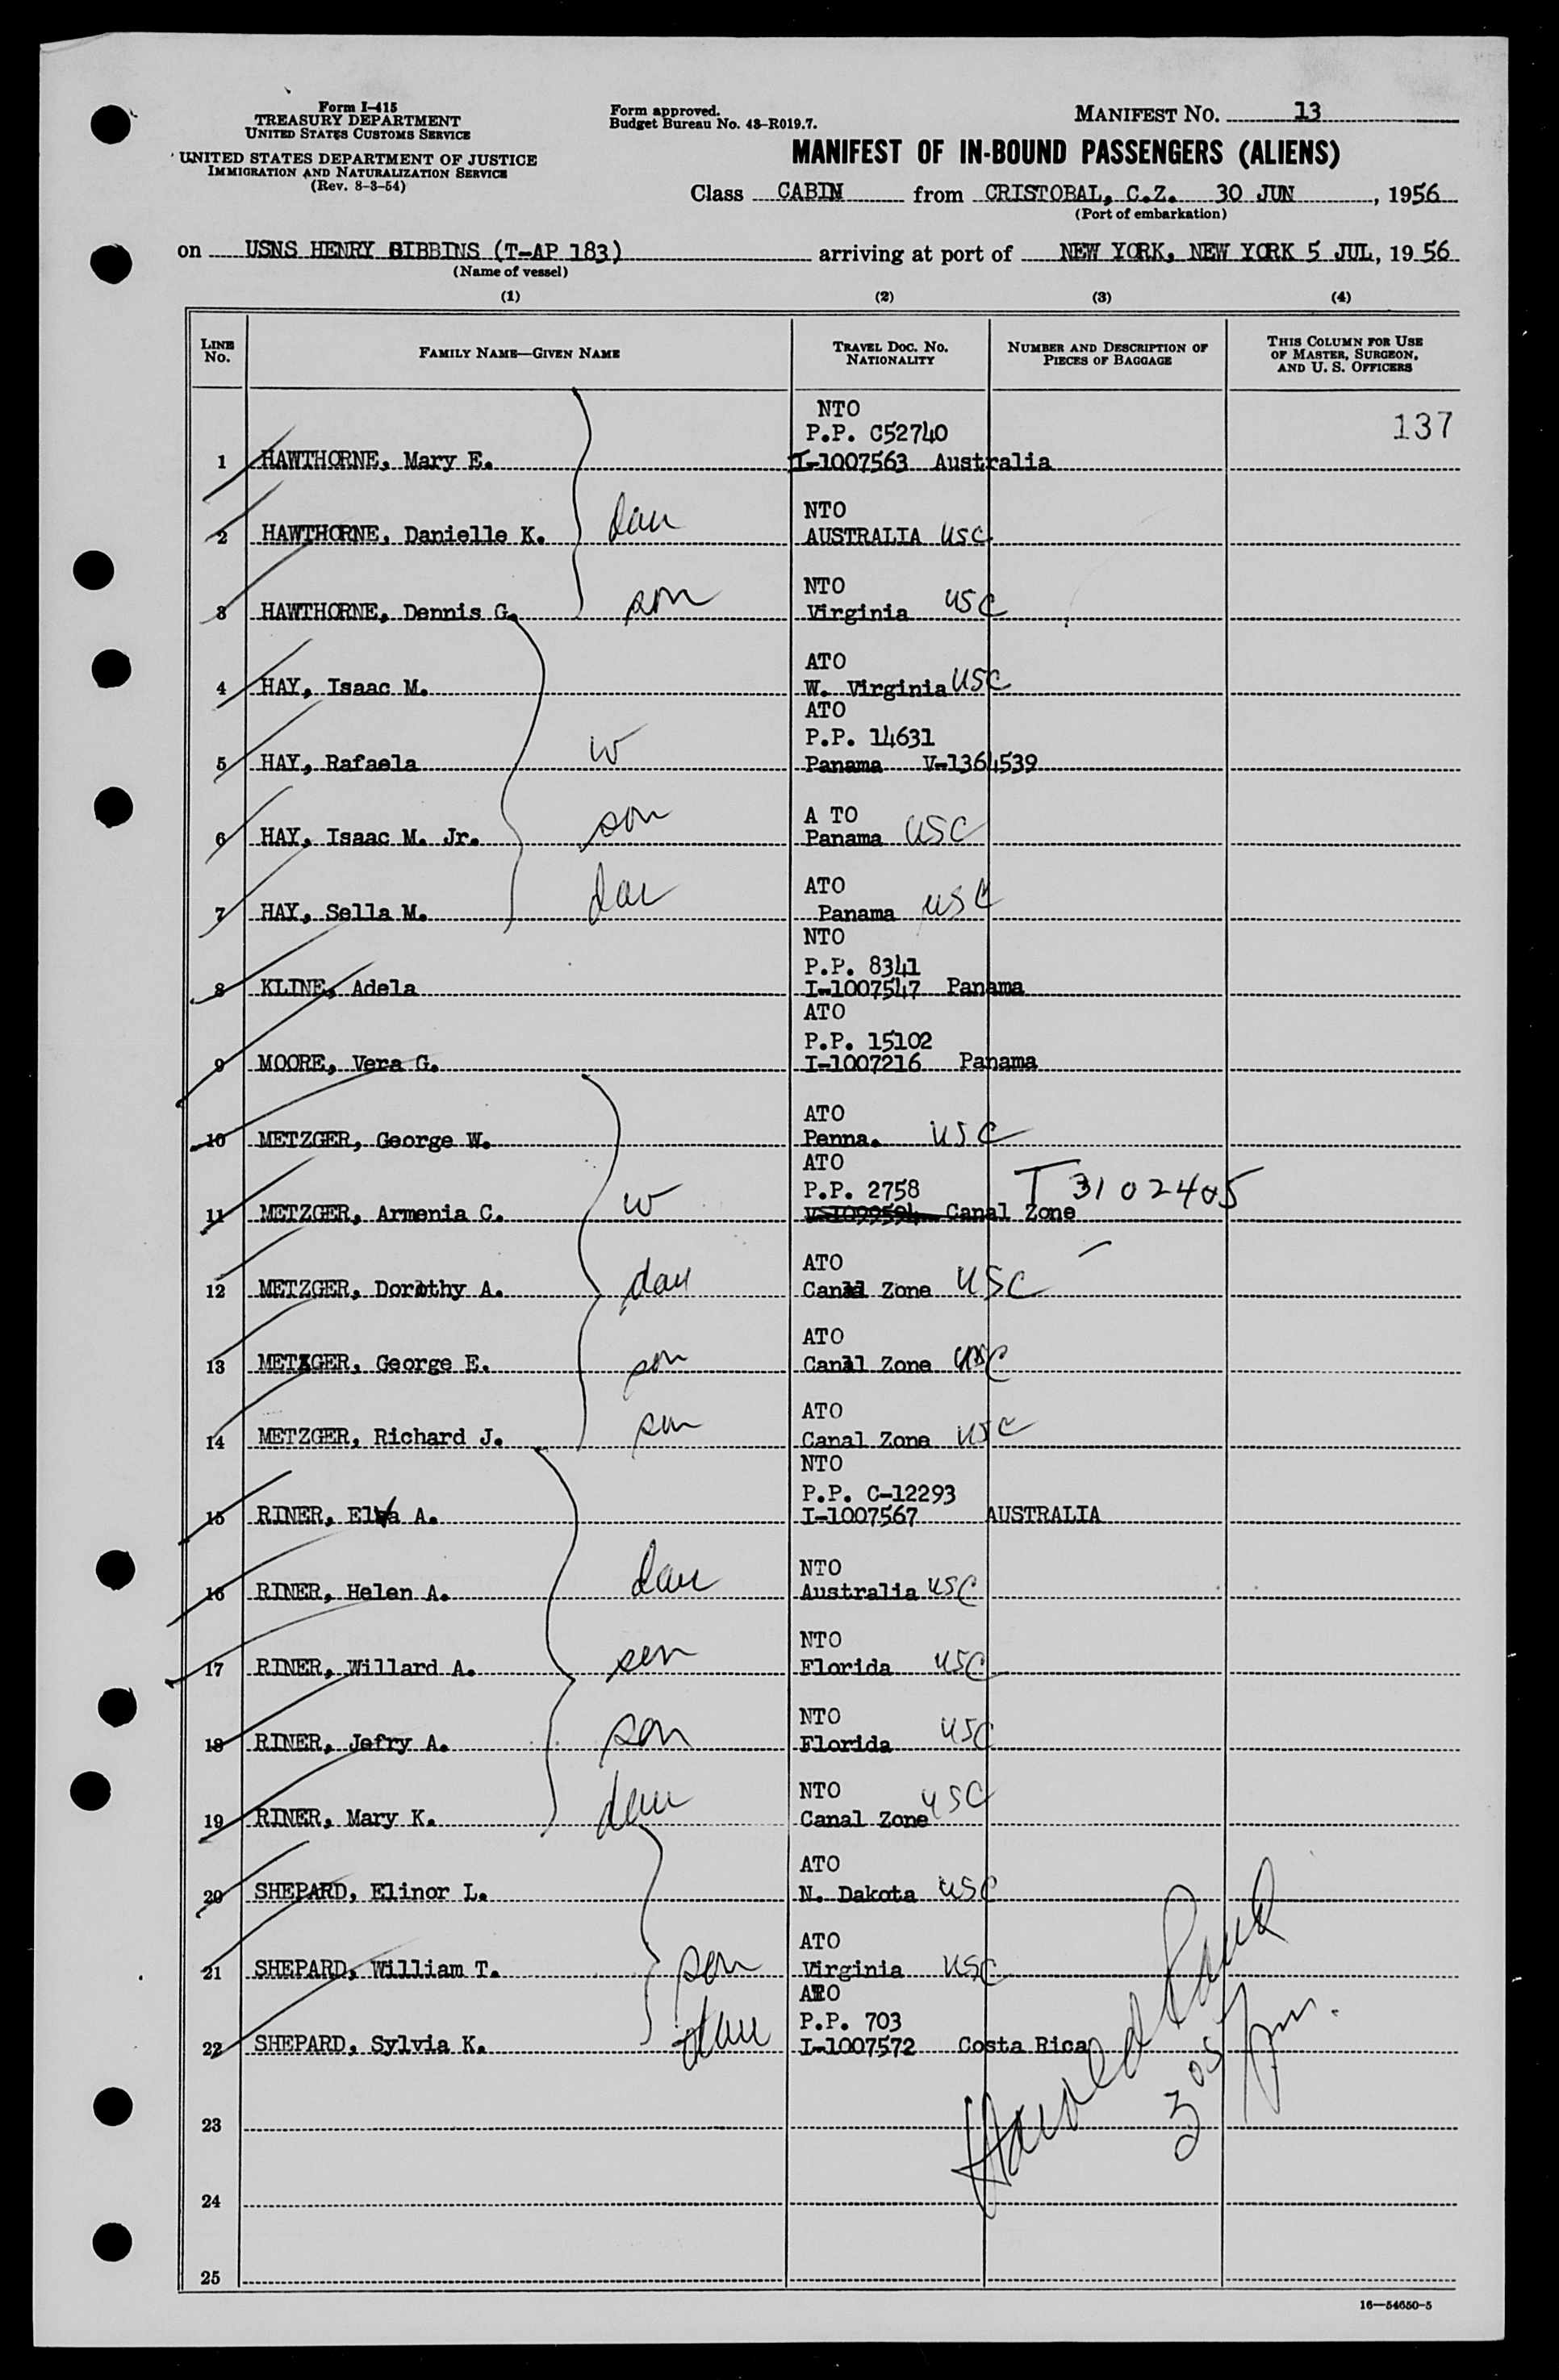 Form I-415
TREASURY DEPARTMENT
UNITED STATES CUSTOMS SERVICE
UNITED STATES DEPARTMENT OF JUSTICE
IMMIGRATION AND NATURALIZATION SERVICE
(Rev. 8-3-54)
Form approved.
Budget Bureau No. 43-R019.7.
MANIFEST NO. 13
MANIFEST OF IN-BOUND PASSENGERS (ALIENS)
Class CABIN from CRISTOBAL, C.Z. 30 JUN, 1956
(Port of embarkation)
on USNS HENRY GIBBINS (T-AP 183) arriving at port of NEW YORK, NEW YORK 5 JUL, 1956
(Name of vessel)
(1) (2) (3) (4)
LINE No. FAMILY NAME—GIVEN NAME TRAVEL DOC. NO. NATIONALITY NUMBER AND DESCRIPTION OF PIECES OF BAGGAGE THIS COLUMN FOR USE OF MASTER, SURGEON, AND U. S. OFFICERS
NTO
P.P. C52740 137
1 HAWTHORNE, Mary E. I-1007563 Australia
NTO
2 HAWTHORNE, Danielle K. dau AUSTRALIA USC
NTO
3 HAWTHORNE, Dennis G. son Virginia USC
ATO
4 HAY, Isaac M. W. Virginia USC
ATO
P.P. 14631
5 HAY, Rafaela w Panama V-1364539
A TO
6 HAY, Isaac M. Jr. son Panama USC
ATO
7 HAY, Sella M. dau Panama USC
NTO
P.P. 8341
8 KLINE, Adela I-1007547 Panama
ATO
P.P. 15102
9 MOORE, Vera G. I-1007216 Panama
ATO
10 METZGER, George W. Penna. USC
ATO
P.P. 2758 T 3102405
11 METZGER, Armenia C. w Canal Zone
ATO
12 METZGER, Dorothy A. dau Canal Zone USC
ATO
13 METZGER, George E. son Canal Zone USC
ATO
14 METZGER, Richard J. son Canal Zone USC
NTO
P.P. C-12293
15 RINER, Elva A. I-1007567 AUSTRALIA
NTO
16 RINER, Helen A. dau Australia USC
NTO
17 RINER, Willard A. son Florida USC
NTO
18 RINER, Jefry A. son Florida USC
NTO
19 RINER, Mary K. dau Canal Zone USC
ATO
20 SHEPARD, Elinor L. N. Dakota USC
ATO
21 SHEPARD, William T. son Virginia USC
ATO
P.P. 703
22 SHEPARD, Sylvia K. dau I-1007572 Costa Rica
Harold
23
24
25
16—54650-5